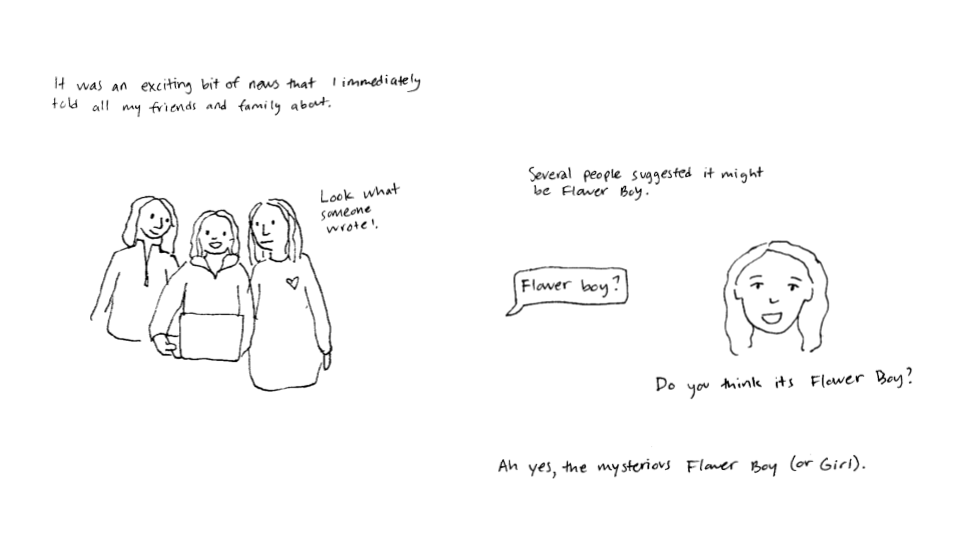 It was an exciting bit of news that I immediately
told all my friends and family about.
Look what
someone
wrote!
Several people suggested it might
be Flower Boy.
Flower boy?
Do you think its Flower Boy?
Ah yes, the mysterious Flower Boy (or Girl).